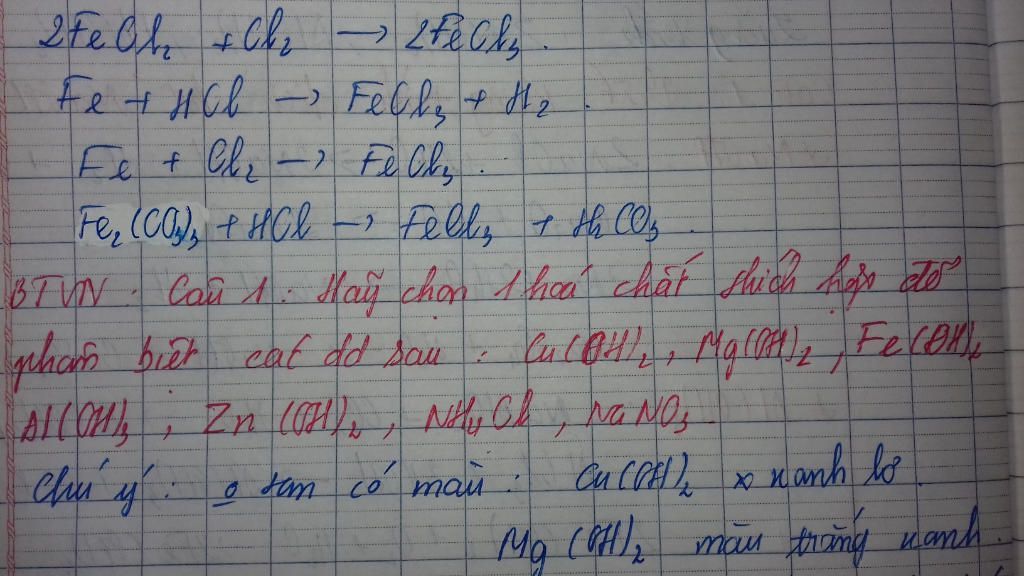 2FeCl₂ + Cl₂ → 2FeCl₃.
Fe + HCl → FeCl₃ + H₂.
Fe + Cl₂ → FeCl₃.
Fe₂(CO₃)₃ + HCl → FeCl₃ + H₂CO₃.
BTVN: Câu 1: Hãy chọn 1 hoá chất thích hợp để
phân biệt các dd sau: Cu(OH)₂, Mg(OH)₂, Fe(OH)₂
Al(OH)₃; Zn(OH)₂, NH₄Cl, NaNO₃.
Chú ý: o tan có màu: Cu(OH)₂ xanh lơ.
Mg(OH)₂ màu trắng xanh.